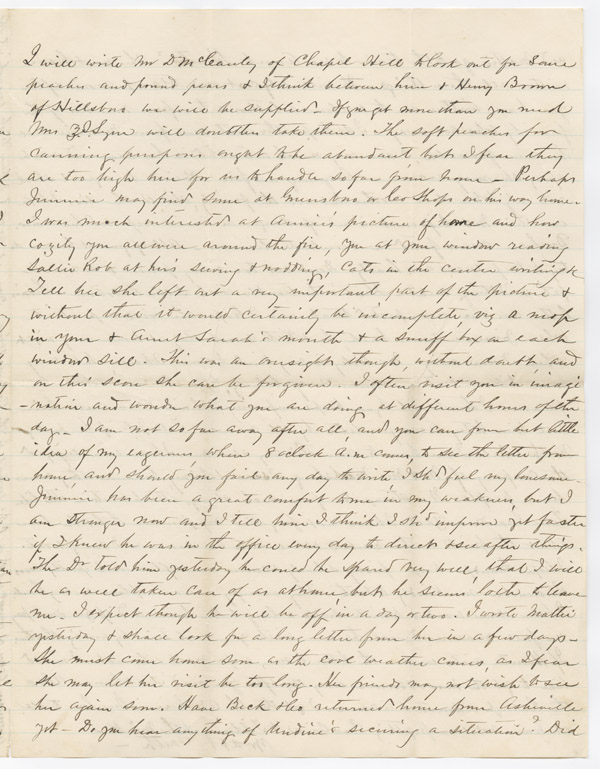 I will write Mr D McCauley of Chapel Hill to look out for some
peaches and pound pears & I think between him & Henry Brown
of Hillsboro we will be supplied - If you get more than you need
Mrs Lyon will doubtless take them. The soft peaches for
canning purposes ought to be abundant but I fear they
are too high here for us to handle so far from home - Perhaps
Jimmie may find some at Greensboro or Co Shops on his way home -
I was much interested at Annie's picture of home and how
cozily you all were around the fire, you at your window reading
Sallie Rob at her's sewing & nodding, Cats in the centre writing &c
Tell her she left out a very important part of the picture &
without that it would certainly be incomplete, viz a mop
in your & Aunt Sarah's mouth & a snuff box on each
window sill. This was an oversight though, without doubt, and
on this score she can be forgiven. I often visit you in imagi
-nation and wonder what you are doing at different hours of the
day - I am not so far away after all, and you can form but little
idea of my eagerness, when 8 oclock A.m comes, to see the letter from
home, and should you fail any day to write I shd feel very lonesome -
Jimmie has been a great comfort to me in my weakness, but I
am stronger now and I tell him I think I shd improve yet faster
if I knew he was in the office every day to direct & see after things -
The Dr told him yesterday he could be spared very well, that I will
be as well taken care of as at home, but he seems loth to leave
me - I expect though he will be off in a day or two. I wrote Mattie
yesterday & shall look for a long letter from her in a few days -
She must come home soon as the cool weather comes, as I fear
she may let her visit be too long. Her friends may not wish to see
her again soon. Have Beck & Co returned home from Asheville
yet - Do you hear anything of Undine's securing a situation? Did